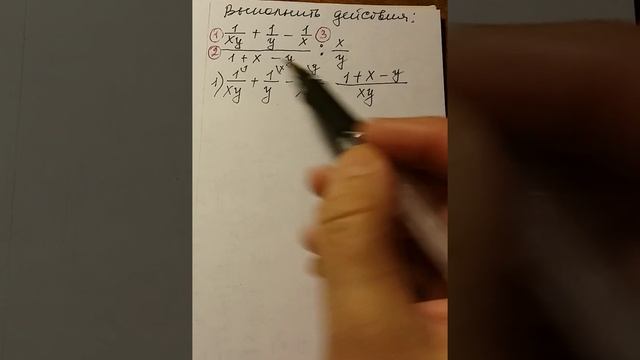 Выполнить действия:
① 1/xy + 1/y − 1/x ③
② 1 + x − y : x/y
1) 1/xy + 1\x/y − \y 1 + x − y/xy